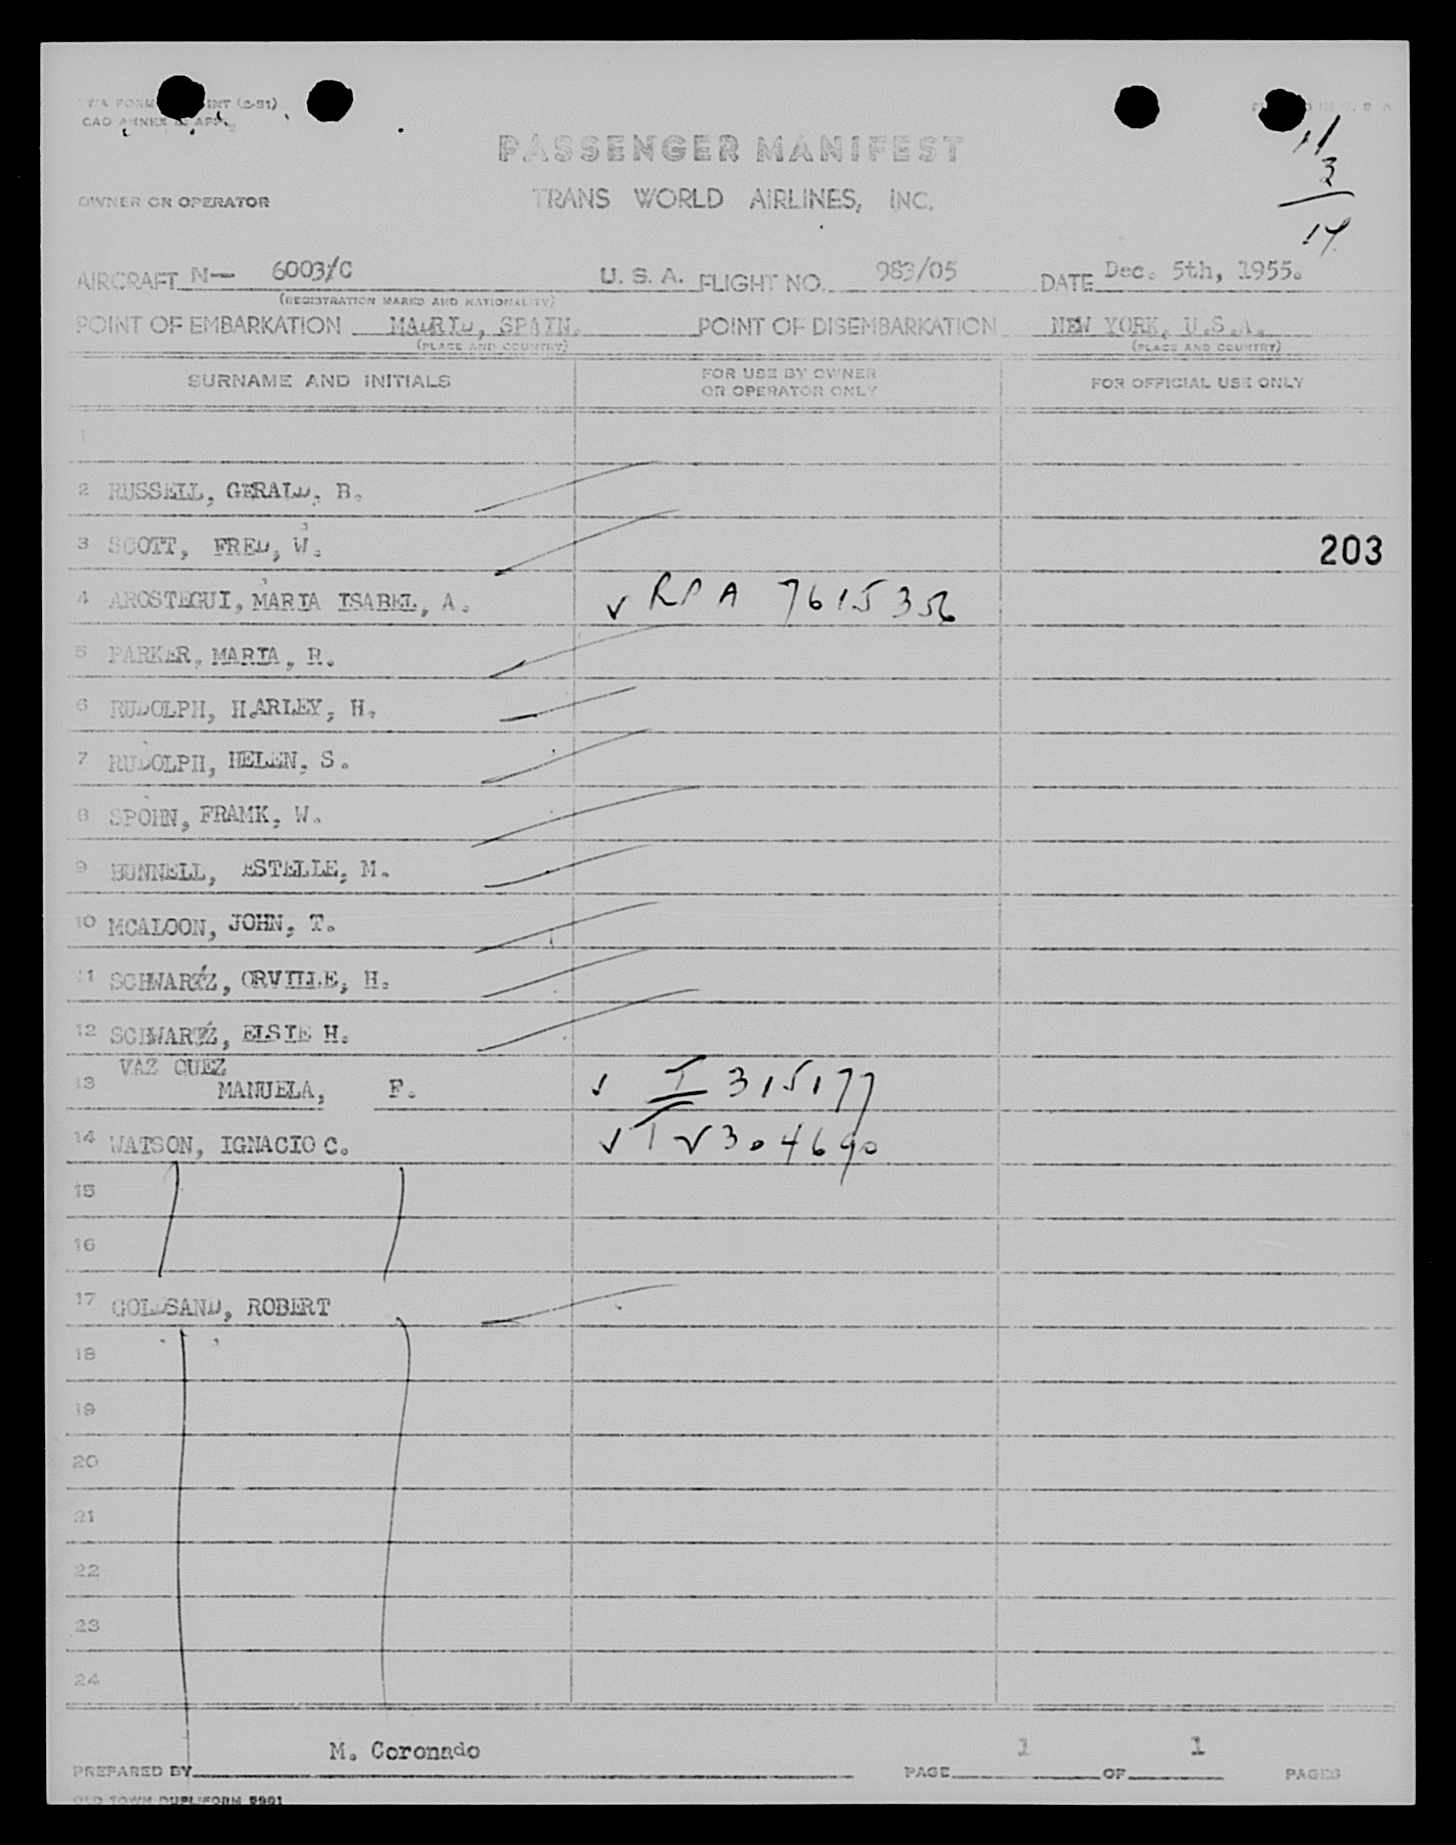 TWA FORM INT (2-51)
CAO ANNEX APP.
PASSENGER MANIFEST
11
3
14
OWNER OR OPERATOR TRANS WORLD AIRLINES, INC.
AIRCRAFT N— 6003/C U. S. A. FLIGHT NO. 983/05 DATE Dec. 5th, 1955.
(REGISTRATION MARKS AND NATIONALITY)
POINT OF EMBARKATION MADRID, SPAIN. POINT OF DISEMBARKATION NEW YORK, U.S.A.
(PLACE AND COUNTRY) (PLACE AND COUNTRY)
SURNAME AND INITIALS FOR USE BY OWNER OR OPERATOR ONLY FOR OFFICIAL USE ONLY
1
2 RUSSELL, GERALD, B.
3 SCOTT, FRED, W. 203
4 AROSTEGUI, MARIA ISABEL, A. ✓ RPA 7615356
5 PARKER, MARIA, R.
6 RUDOLPH, HARLEY, H.
7 RUDOLPH, HELEN, S.
8 SPOHN, FRAMK, W.
9 BUNNELL, ESTELLE, M.
10 MCALOON, JOHN, T.
11 SCHWARTZ, ORVILLE, H.
12 SCHWARTZ, ELSIE H.
VAZ QUEZ
13 MANUELA, F. ✓ I 315177
14 WATSON, IGNACIO C. ✓ I V 304690
15
16
17 GOLDSAND, ROBERT
18
19
20
21
22
23
24
PREPARED BY M. Coronado PAGE 1 OF 1 PAGES
OLD TOWN DUPLIFORM 9991